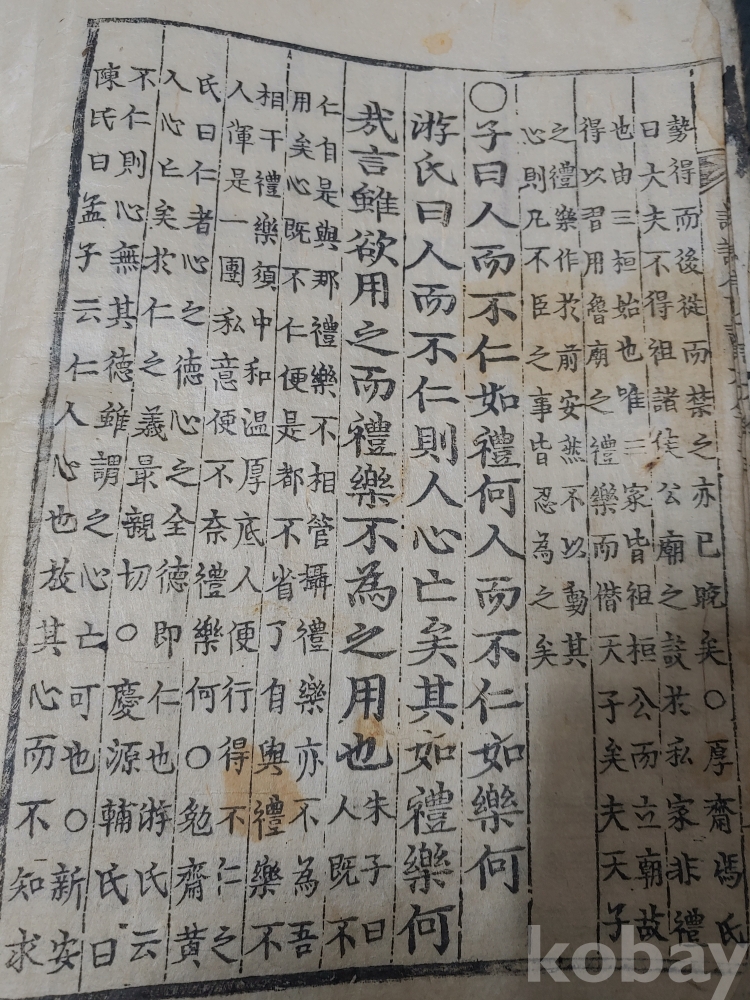 勢得而後從而禁之亦已晩矣○厚齋馮氏
曰大夫不得祖諸侯公廟之設於私家非禮
也由三桓始也唯三家皆祖桓公而立廟故
得以習用魯廟之禮樂而僣天子矣夫天子
之禮樂作於前安然不以動其
心則凡不臣之事皆忍為之矣
○子曰人而不仁如禮何人而不仁如樂何
游氏曰人而不仁則人心亡矣其如禮樂何
哉言雖欲用之而禮樂不為之用也
朱子曰
人既不
仁自是與那禮樂不相管攝禮樂亦不為吾
用矣心既不仁便是都不省了自與禮樂不
相干禮樂須中和温厚底人便行得不仁之
人渾是一團私意便不奈禮樂何○勉齋黃
氏曰仁者心之德心之全德即仁也游氏云
人心亡矣於仁之義最親切○慶源輔氏曰
不仁則心無其德雖謂之心亡可也○新安
陳氏曰孟子云仁人心也放其心而不知求
kobay